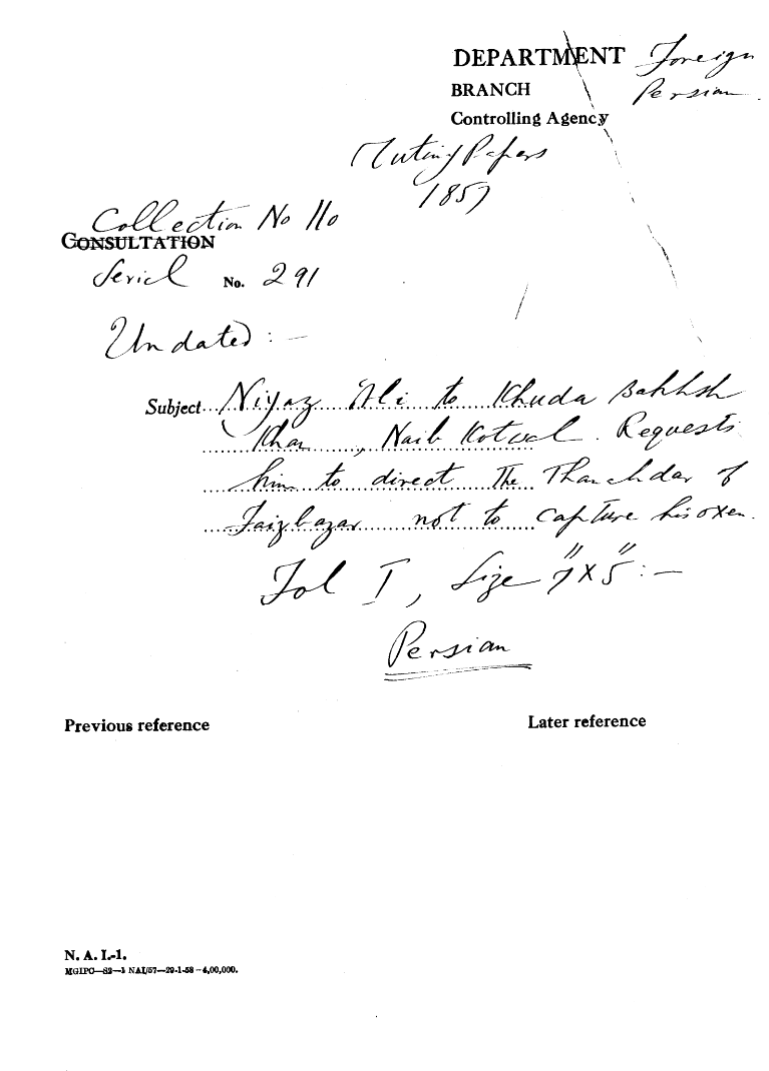 DEPARTMENT Foreign
BRANCH Persian.
Controlling Agency
Mutiny Papers
1857
Collection No 110
CONSULTATION
Serial No. 291
Undated :-
Subject Niyaz Ali to Khuda Bakhsh
Khan, Naib Kotwal. Requests
him to direct The Thanehdar of
Faizbazar not to capture his oxen.
Fol I, Size 7" x 5" :-
Persian
Previous reference Later reference
N. A. I.-1.
MGIPC—S2—1 NAI/57—29-1-58—4,00,000.